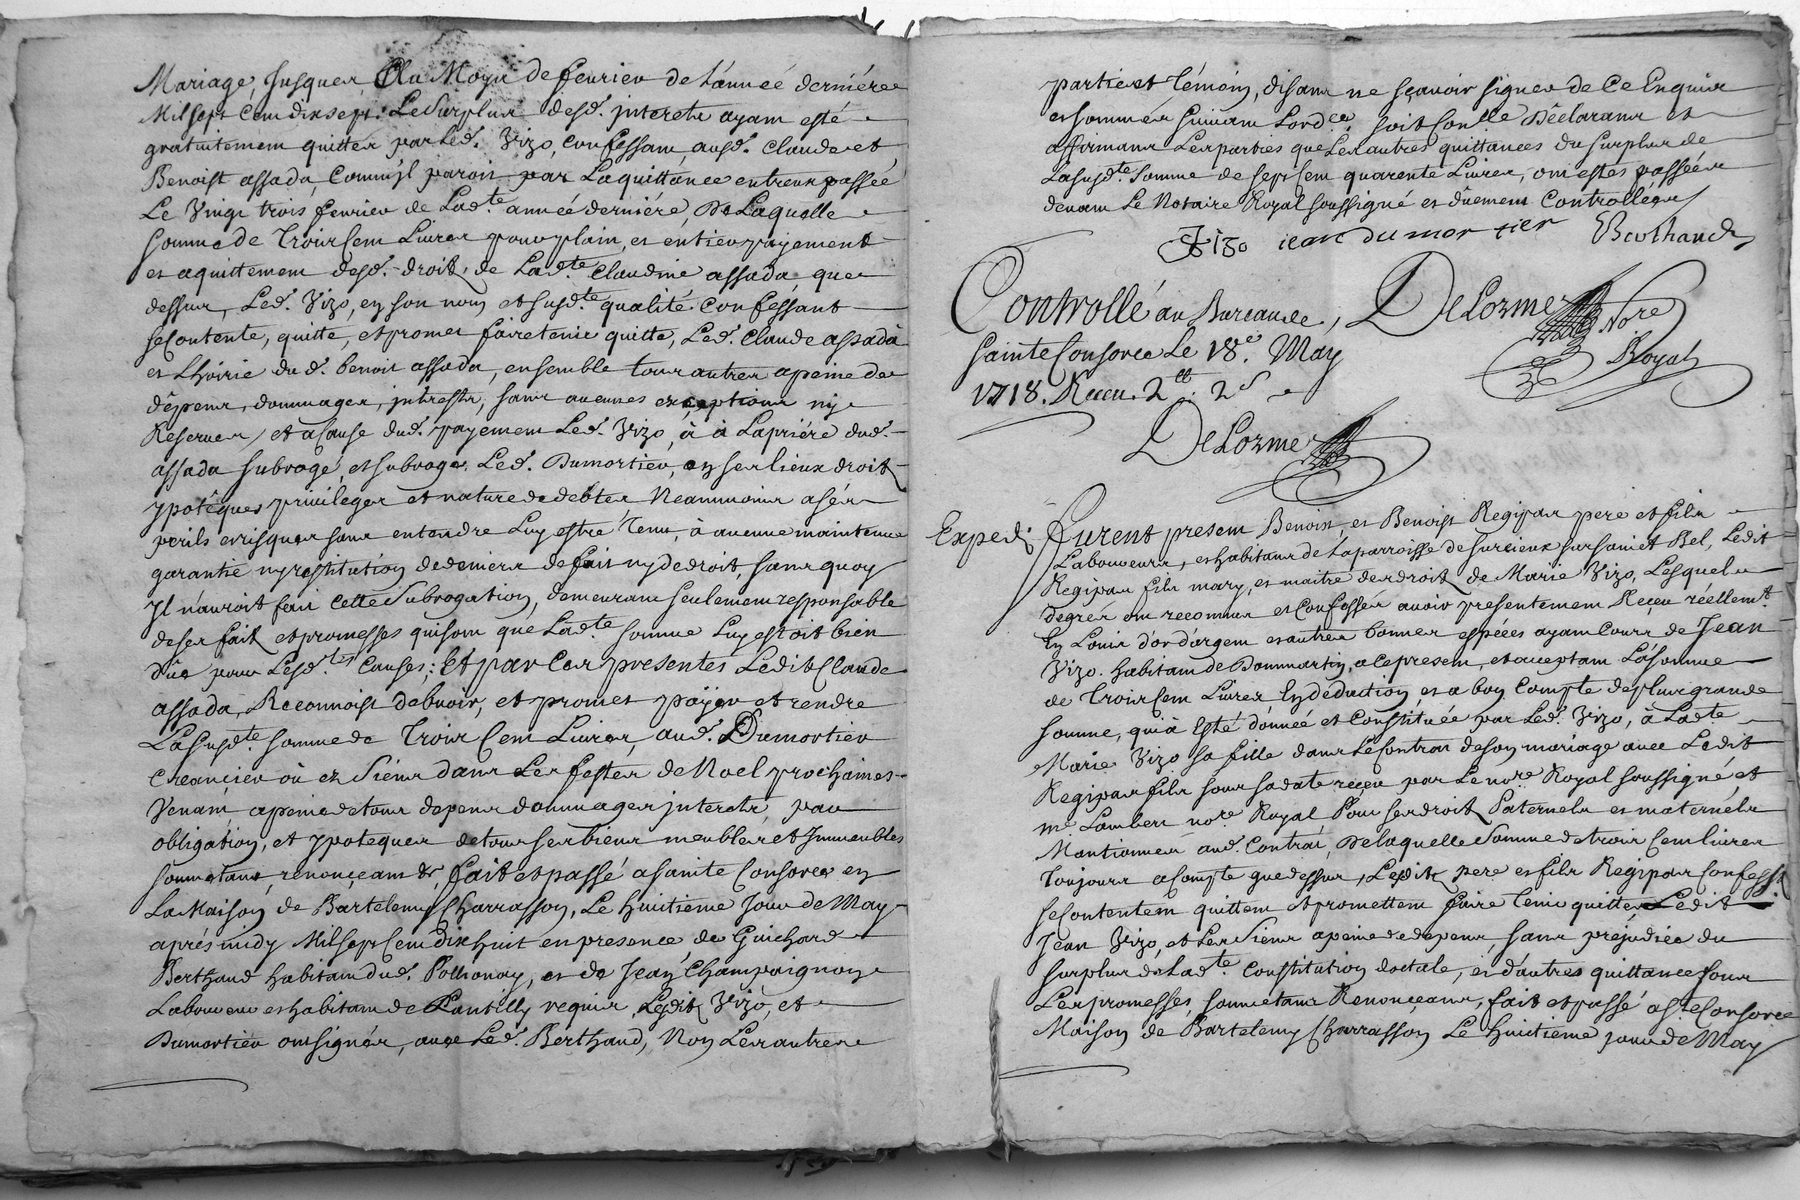 Mariage, Jusques Au Moys de feurier de l'année derniére
Mil sept Cem dix sept: Le Surplus desd. interests ayam esté
gratuitement quitter par Led. Vizo, confessam, ausd. Claude et
Benoist assada, Comm'jl paroit par La quittance entreux passée
Le Vingt trois feurier de Lad.te année derniére, De Laquelle
somme de Trois Cem Liures pour plain, et entier payement
et aquittement desd. droits, de Lad.te Claudine assada que
dessus, Led. Vizo, en son nom et susd.te qualité confessant
se Contente, quitte, et promet faire tenir quitte, Led. Claude assada
et L'hoirie dud. benoit assada, ensemble tous autres a peine de
dépens, dommages, jnterests, sans aucunes exceptions ny
Reserues, et a Cause dud. payement Led. Vizo, à à La priére dud.
assada subrogé, et subroge, Led. Dumortier, en ses lieux droits
ypotêques priuileges et nature de debtes Neanmoins a sés
perils et risques sans entendre Luy estre Tenu, à aucune maintenue
garantie ny restitution de deniers de fait ny de droit, sans quoy
Jl n'auroit fait Cette Subrogation, demeurant seulement responsable
de ses faits et promesses qui som que Lad.te somme Luy estoit bien
dûe pour Lesd.tes Causes; Et par Ces presentes Ledit Claude
assada, Reconnoist debuoir, et promet payer et rendre
La Susd.te somme de Trois Cem Liures, aud. Dumortier
Creancier où ez Siéns dans Les festes de Noel prochaines
Venant, a peine de tous depens dommages jnterests, par
obligation, et ypoteques de tous ses biens meubles et Jmmeubles
soumettans, renonçeam &, fait et passé a Sainte Consorce en
La Maison de Bartelemy Charrasson, Le huitieme Jour de May
aprés midy Mil sept Cem dix huit en presence de Guichard
Berthaud habitam dud. Pollionay, et de Jean Champaignon
Laboureur et habitam de Lantilly requis, Ledit Vizo, et
Dumortier om signés, auec Led. Berthaud, Non Les autres
parties et Témoin, disans ne sçauoir signer de Ce Enquis
et sommés suiuam Lord.ce soit Son.lle Déclarans et
affirmans Les parties que Les autres quittances du surplus de
La susd.te Somme de sept Cem quarente Liures, om estes passées
deuant Le Notaire Royal soussigné et dûement Controllées
Vizo jean du mor tier Berthaud
Controllé au Bureau de, DeLorme Nore
Sainte Consorce Le 18.e May Royal
1718. Receu 2tt. 2s
DeLorme
Exped. furent presem Benoist, et Benoist Regipas pere et fils
Laboureurs, et habitans de La parroisse de Surcieux sur Sainct Bel, Ledit
Regipas fils mary, et maitre des droits de Marie Vizo, Lesquels
de grés om reconnus et confessés auoir presentement Reçeu réellemt.
En Louis d'or d'argem et autres bonnes espéces ayam Cours de Jean
Vizo habitam de Dommartin, a ce presem, et acceptam La Somme
de Trois Cem Liures En déduction et a bon Compte de plus grande
somme, qui à Esté donnée et Constituée par Led. Vizo, à Ladte
Marie Vizo sa fille dans Le Contrat de son mariage auec Ledit
Regipas fils sous sa date reçeu par Le nore Royal soussigné et
me Lambert nore. Royal Pour ses droits Paternels et maternéls
Mentionnés aud. Contrat, De laquelle Somme de trois Cem liures
Toujours a Compte que dessus, Lesdits pere et fils Regipas Confess.t
se Contentem quittem et promettem faire Tenir quitte Ledit
Jean Vizo, et Les Siens a peine de depens, sans préjudice du
surplus de Lad.te Constitution dotale, et d'autres quittances sous
Les promesses, soumettans Renonçeans, fait et passé a Ste Consorce
Maison de Bartelemy Charrasson Le Huitieme jour de May